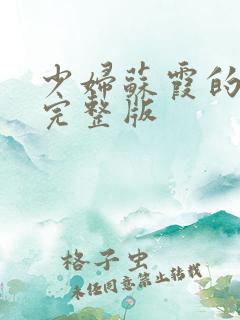 少婦蘇霞的
完整版
格子虫
未经同意禁止转载